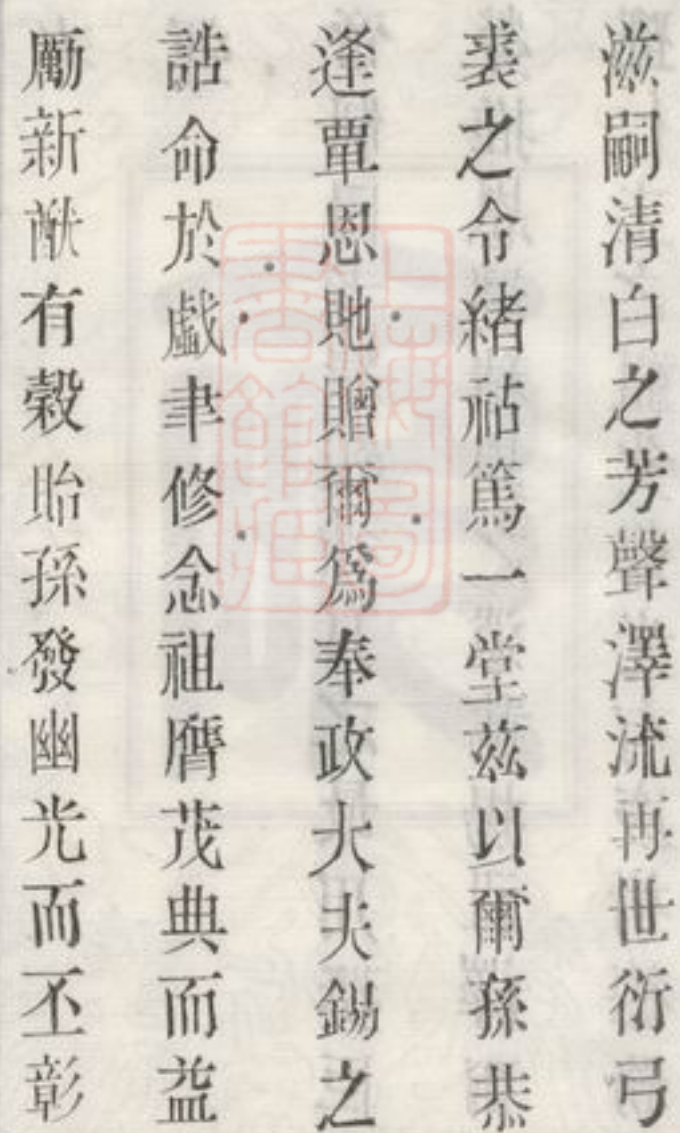 滋嗣清白之芳聲澤流再世衍弓
裘之令緒祜篤一堂茲以爾孫恭
逢覃恩貤贈爾爲奉政大夫錫之
誥命於戲聿修念祖膺茂典而益
勵新猷有穀貽孫發幽光而丕彰
上海圖書館藏